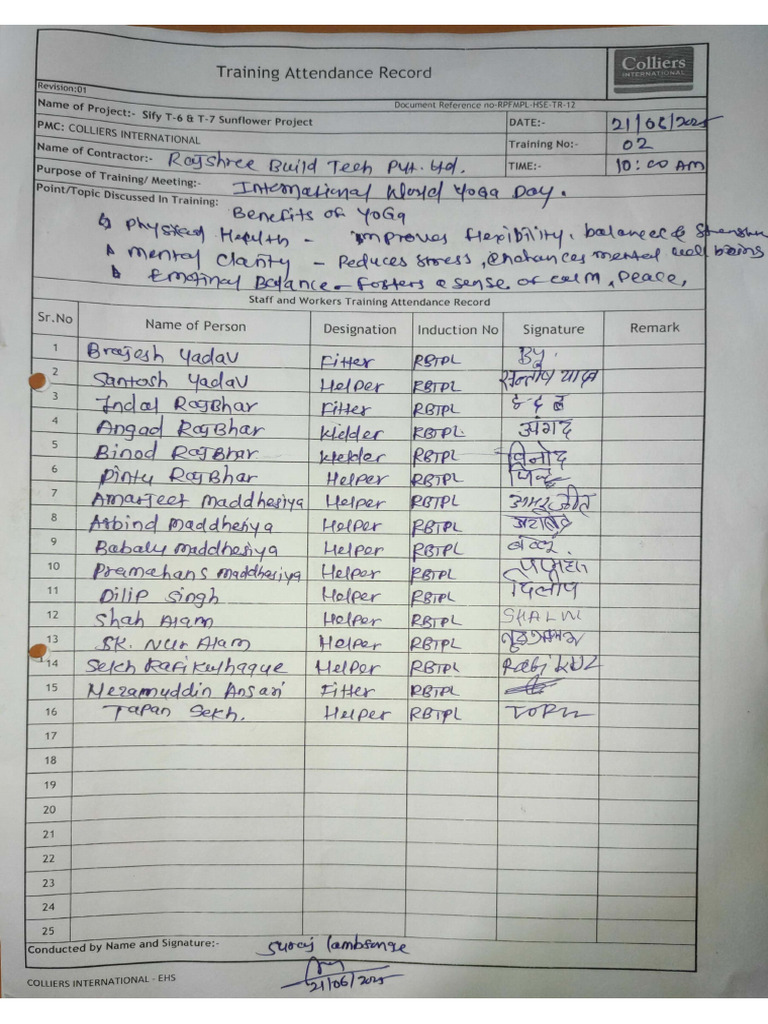 Training Attendance Record
Colliers
INTERNATIONAL
Revision:01
Document Reference no-RPFMPL-HSE-TR-12
Name of Project:- Sify T-6 & T-7 Sunflower Project DATE:- 21/06/2025
PMC: COLLIERS INTERNATIONAL Training No:- 02
Name of Contractor:- Rajshree Build Tech Pvt. Ltd. TIME:- 10:00 AM
Purpose of Training/ Meeting:- International World Yoga Day.
Point/Topic Discussed In Training: Benefits of YoGa
Physical Health - improves flexibility, balances &
mental clarity - Reduces stress, mental well
Emotinal Balance - Fosters a sense of calm, Peace,
Staff and Workers Training Attendance Record
Sr.No Name of Person Designation Induction No Signature Remark
1 Brajesh Yadav Fitter RBTPL By.
2 Santosh Yadav Helper RBTPL सन्तोष यादव
3 Indal RajBhar Fitter RBTPL
4 Angad RajBhar RBTPL. अंगद
5 Binod RajBhar RBTPL विनोद
6 Pintu RajBhar Helper RBTPL
7 Amarjeet maddhesiya Helper RBTPL अमरजीत
8 Arbind maddhesiya Helper RBTPL
9 Babalu maddhesiya Helper RBTPL
10 Pramahans maddhesiya Helper RBTPL
11 Dilip Singh Helper RBTPL दिलीप
12 Shah Alam Helper RBTPL
13 SK. Nur Alam Helper RBTPL
14 Sekh Rafikulhaque Helper RBTPL
15 Mezamuddin Ansari Fitter RBTPL
16 Tapan Sekh. Helper RBTPL
17
18
19
20
21
22
23
24
25
Conducted by Name and Signature:- Suraj
21/06/2025
COLLIERS INTERNATIONAL - EHS